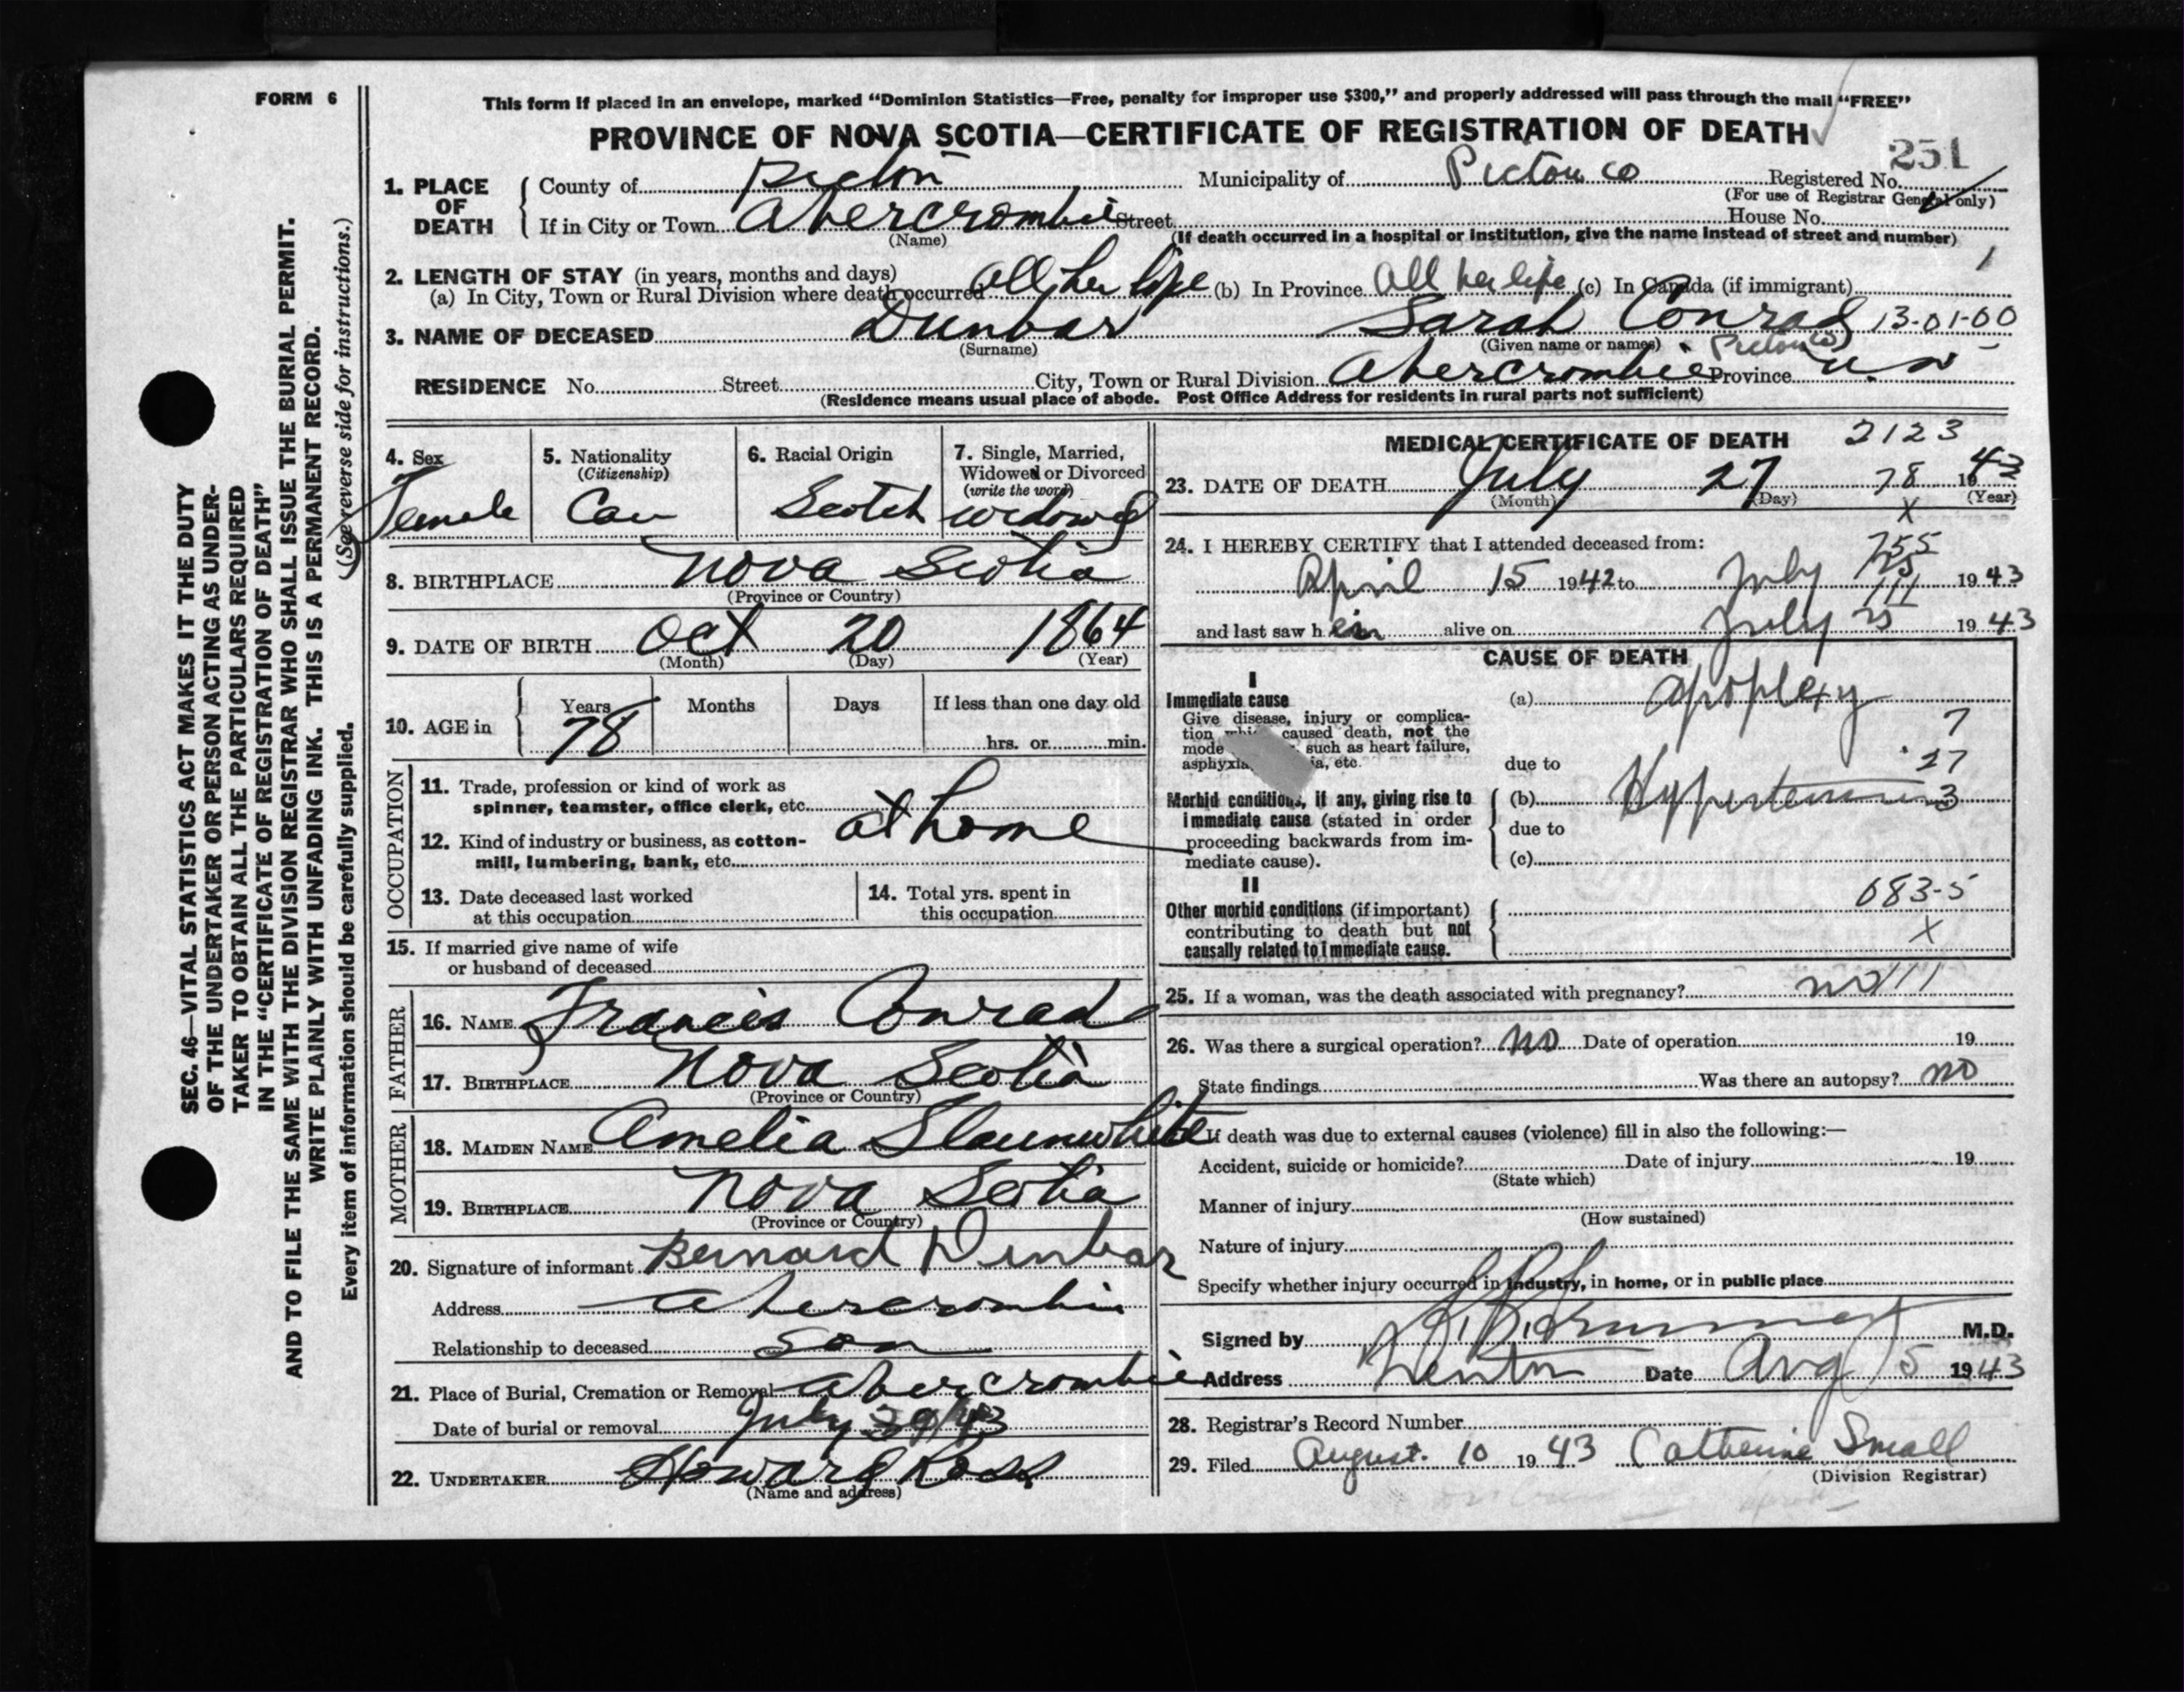 FORM 6
This form if placed in an envelope, marked “Dominion Statistics—Free, penalty for improper use $300,” and properly addressed will pass through the mail “FREE”
PROVINCE OF NOVA SCOTIA—CERTIFICATE OF REGISTRATION OF DEATH
251
1. PLACE OF DEATH
County of Pictou Municipality of Pictou Co Registered No.
(For use of Registrar General only)
If in City or Town Abercrombie Street House No.
(Name) (If death occurred in a hospital or institution, give the name instead of street and number)
1
2. LENGTH OF STAY (in years, months and days)
(a) In City, Town or Rural Division where death occurred All her life (b) In Province All her life (c) In Canada (if immigrant)
3. NAME OF DECEASED Dunbar Sarah Conrad 13-01-00
(Surname) (Given name or names) Pictou Co
RESIDENCE No. Street City, Town or Rural Division Abercrombie Province
(Residence means usual place of abode. Post Office Address for residents in rural parts not sufficient)
4. Sex Female
5. Nationality (Citizenship) Can
6. Racial Origin Scotch
7. Single, Married, Widowed or Divorced (write the word) Widowed
8. BIRTHPLACE Nova Scotia
(Province or Country)
9. DATE OF BIRTH Oct 20 1864
(Month) (Day) (Year)
10. AGE in Years Months Days If less than one day old
78 hrs. or min.
OCCUPATION
11. Trade, profession or kind of work as
spinner, teamster, office clerk, etc.
at home
12. Kind of industry or business, as cotton-
mill, lumbering, bank, etc.
13. Date deceased last worked
at this occupation
14. Total yrs. spent in
this occupation
15. If married give name of wife
or husband of deceased
FATHER
16. NAME Francis Conrad
17. BIRTHPLACE Nova Scotia
(Province or Country)
MOTHER
18. MAIDEN NAME Amelia Slaunwhite
19. BIRTHPLACE Nova Scotia
(Province or Country)
20. Signature of informant Bernard Dunbar
Address Abercrombie
Relationship to deceased Son
21. Place of Burial, Cremation or Removal Abercrombie
Date of burial or removal July
22. UNDERTAKER Howard Ross
(Name and address)
MEDICAL CERTIFICATE OF DEATH 2123
23. DATE OF DEATH July 27 78 1943
(Month) (Day) (Year)
X
24. I HEREBY CERTIFY that I attended deceased from:
755
April 15 1942 to July 1943
111
and last saw her alive on July 25 1943
CAUSE OF DEATH
I
Immediate cause (a) apoplexy
Give disease, injury or complica-
tion caused death, not the
mode such as heart failure,
asphyxia, etc.
7
due to 27
Morbid conditions, if any, giving rise to
immediate cause (stated in order
proceeding backwards from im-
mediate cause).
(b) Hypertension 3
due to
(c)
II
083-5
Other morbid conditions (if important)
contributing to death but not
causally related to immediate cause.
X
25. If a woman, was the death associated with pregnancy? no 111
26. Was there a surgical operation? no Date of operation 19
State findings Was there an autopsy? no
If death was due to external causes (violence) fill in also the following:—
Accident, suicide or homicide? Date of injury 19
(State which)
Manner of injury
(How sustained)
Nature of injury
Specify whether injury occurred in industry, in home, or in public place
Signed by M.D.
Address Trenton Date Aug 5 1943
28. Registrar's Record Number
29. Filed August 10 1943 Catherine Small
(Division Registrar)
SEC. 46—VITAL STATISTICS ACT MAKES IT THE DUTY
OF THE UNDERTAKER OR PERSON ACTING AS UNDER-
TAKER TO OBTAIN ALL THE PARTICULARS REQUIRED
IN THE “CERTIFICATE OF REGISTRATION OF DEATH”
AND TO FILE THE SAME WITH THE DIVISION REGISTRAR WHO SHALL ISSUE THE BURIAL PERMIT.
WRITE PLAINLY WITH UNFADING INK. THIS IS A PERMANENT RECORD.
Every item of information should be carefully supplied. (See reverse side for instructions.)